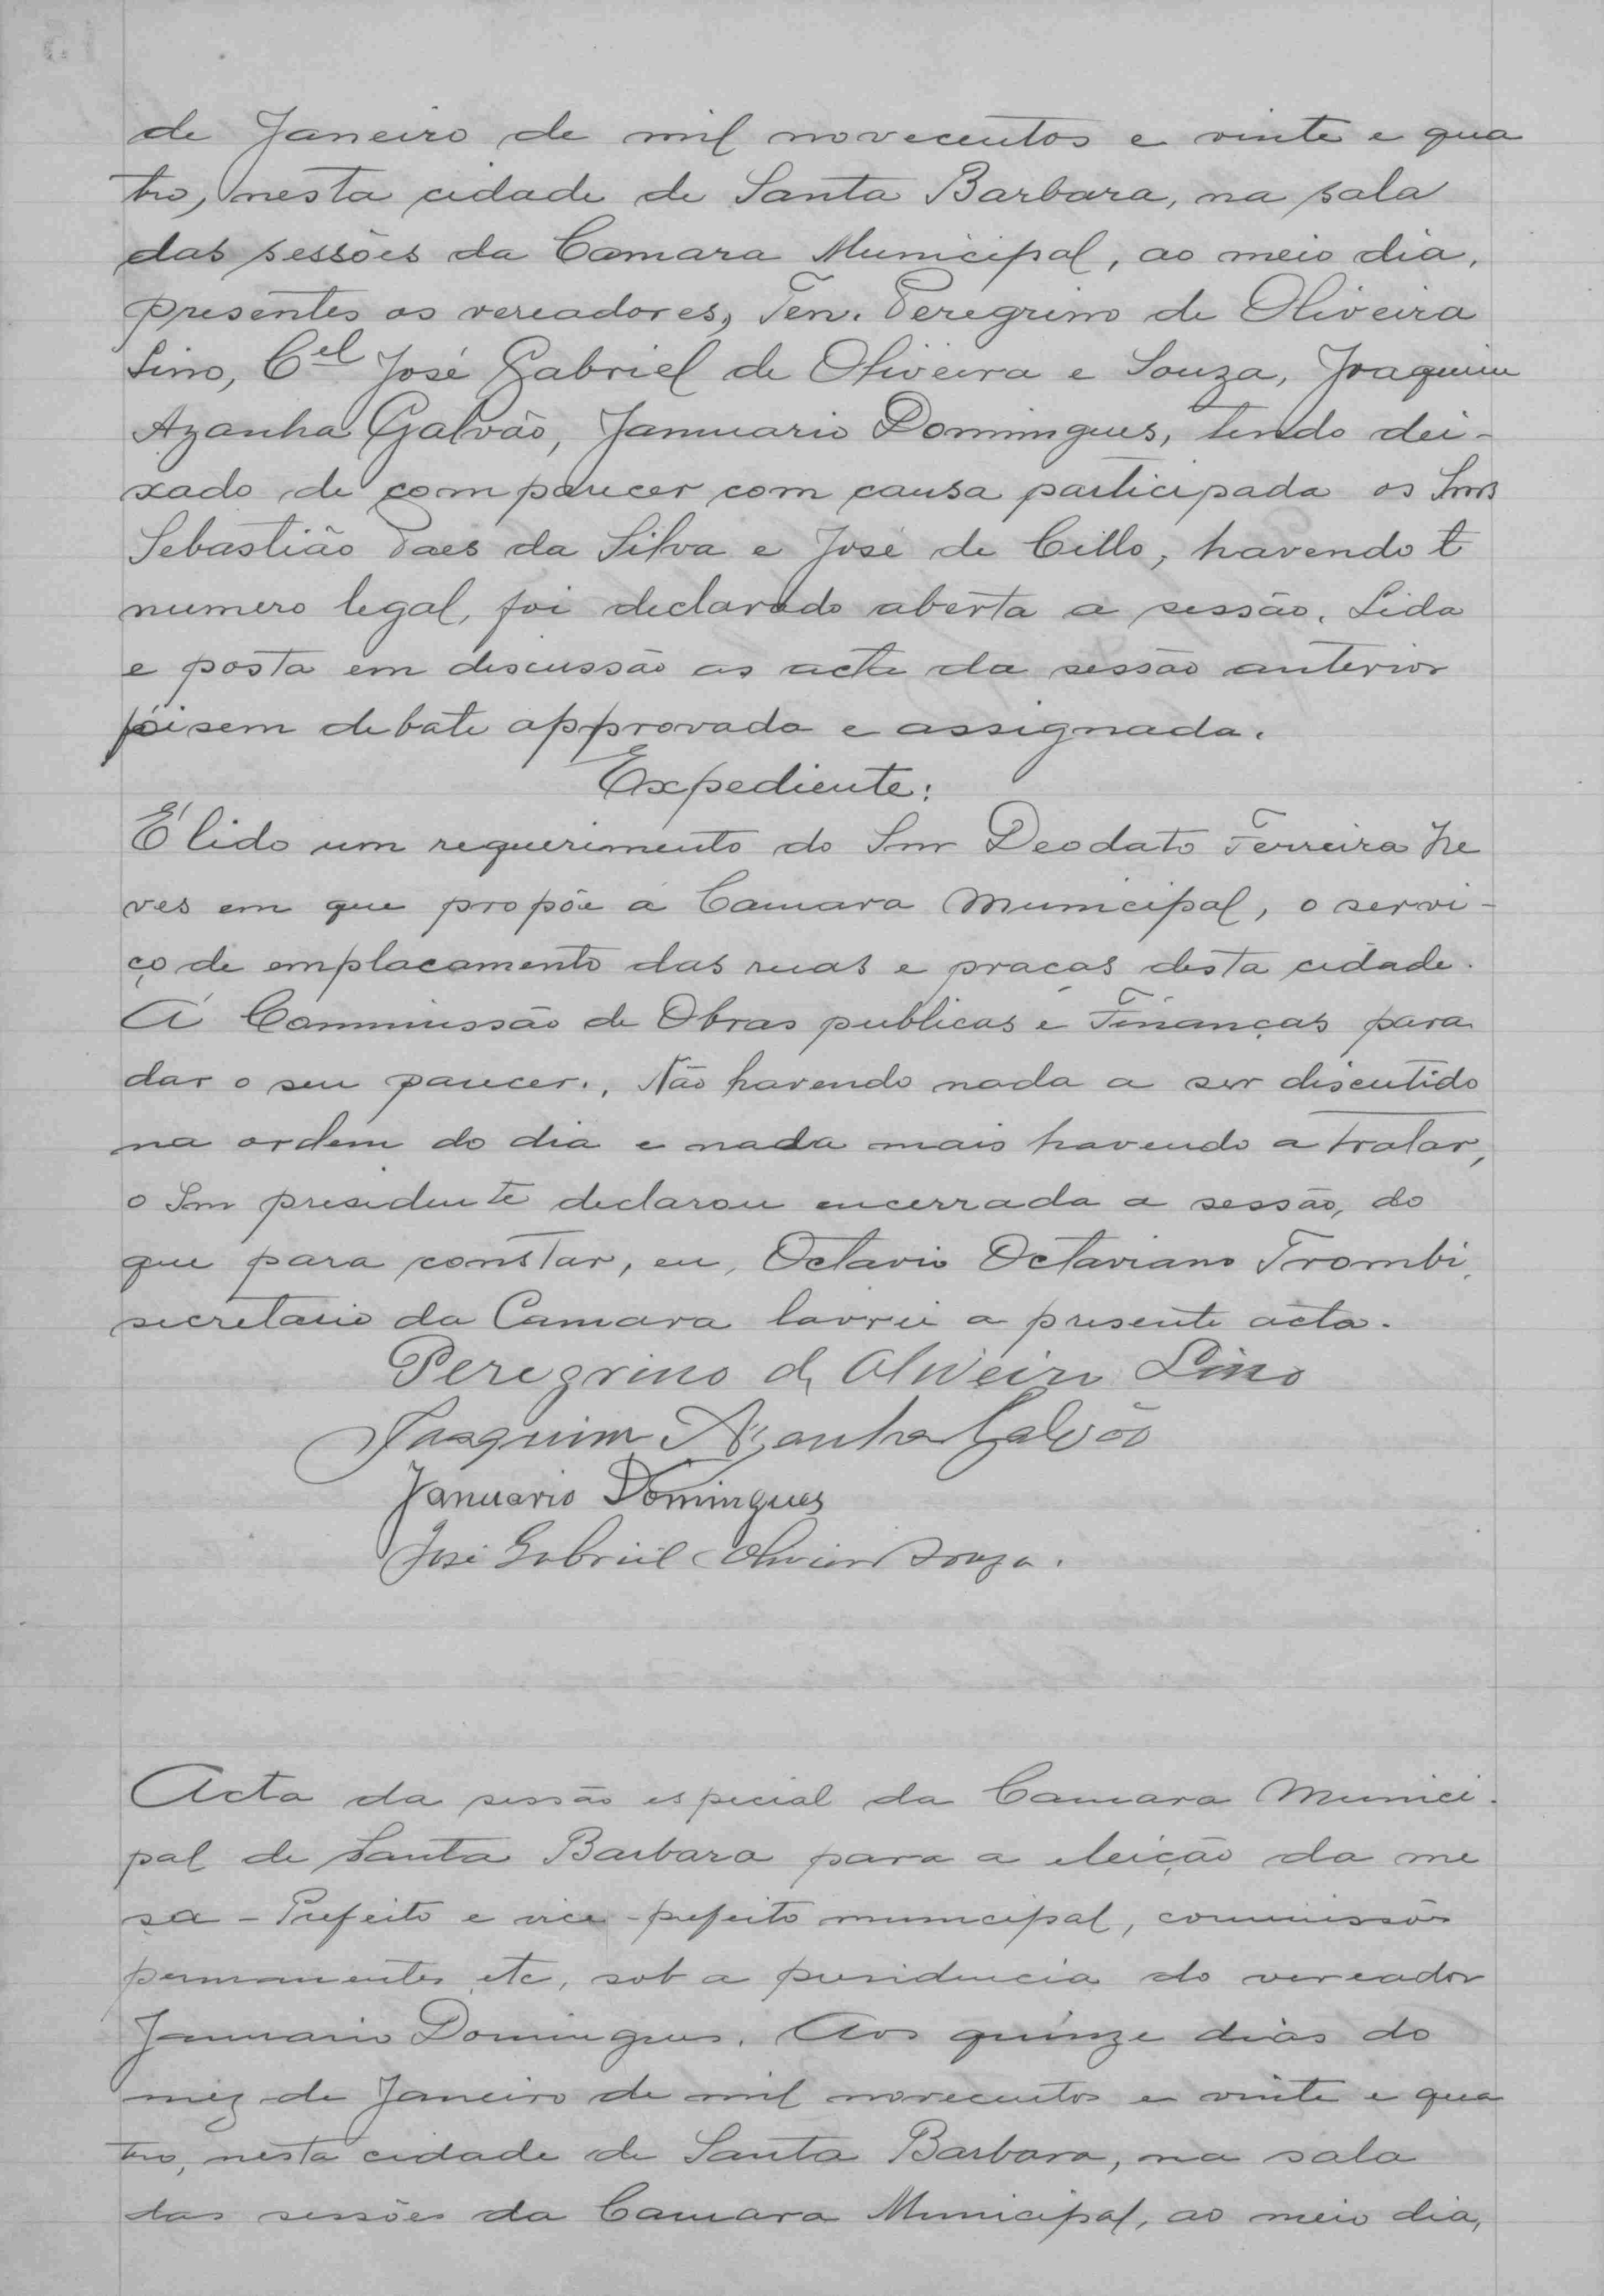 de Janeiro de mil novecentos e vinte e qua
tro, nesta cidade de Santa Barbara, na sala
das sessões da Camara Municipal, ao meio dia,
presentes os vereadores, Ten. Peregrino de Oliveira
Lino, Cel José Gabriel de Oliveira e Souza, Joaquim
Azanha Galvão, Januario Domingues, tendo dei-
xado de comparecer com causa participada os Snrs
Sebastião Paes da Silva e José de Cillo, havendo
numero legal, foi declarado aberta a sessão. Lida
e posta em discussão as acta da sessão anterior
foi sem debate approvada e assignada.
Expediente:
É lido um requerimento do Snr Deodato Ferreira Ne
ves em que propõe á Camara Municipal, o servi-
ço de emplacamento das ruas e praças desta cidade.
Á Commissão de Obras publicas e Finanças para
dar o seu parecer., Não havendo nada a ser discutido
na ordem do dia e nada mais havendo a tratar,
o Snr presidente declarou encerrada a sessão, do
que para constar, eu, Octavio Octaviano Trombi,
secretario da Camara lavrei a presente acta.
Peregrino de Oliveira Lino
Joaquim Azanha Galvão
Januario Domingues
José Gabriel Oliveira Souza.
Acta da sessão especial da Camara Munici-
pal de Santa Barbara para a eleição da me
sa - Prefeito e vice-prefeito municipal, commissões
permanentes etc, sob a presidencia do vereador
Januario Domingues. Aos quinze dias do
mez de Janeiro de mil novecentos e vinte e qua
tro, nesta cidade de Santa Barbara, na sala
das sessões da Camara Municipal, ao meio dia,